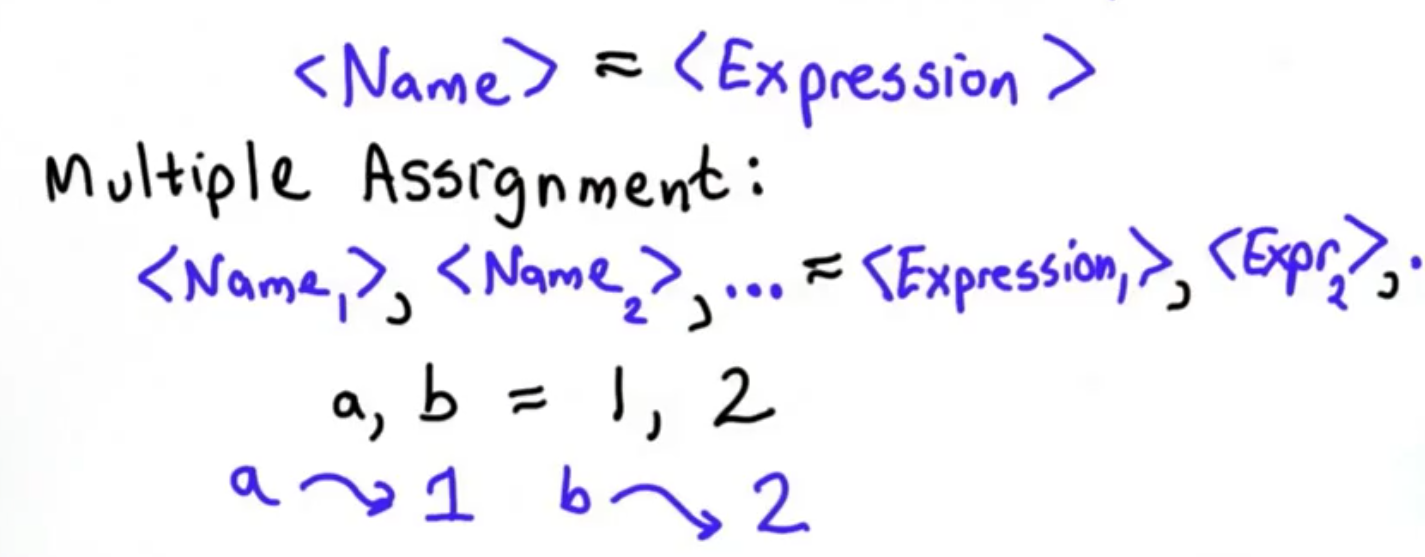 <Name> = <Expression>
Multiple Assignment:
<Name₁>, <Name₂>, ... = <Expression₁>, <Expr₂>, .
a, b = 1, 2
a → 1 b → 2